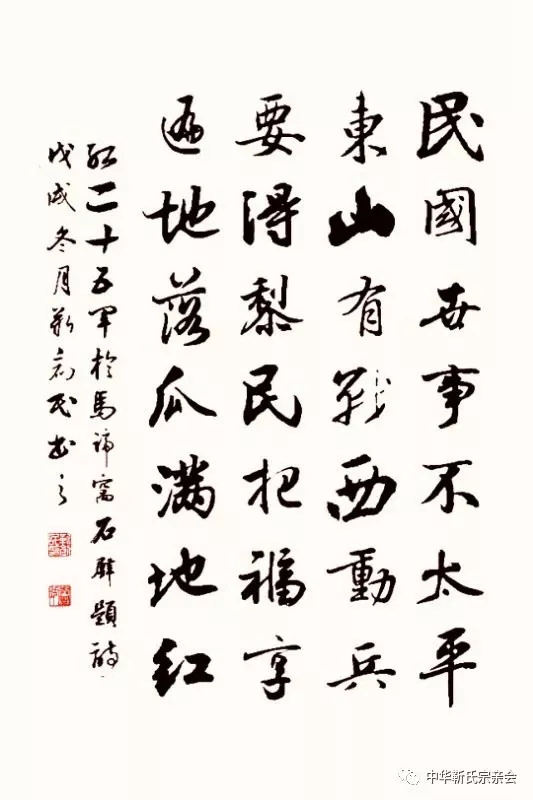 民國世事不太平
東山有戰西動兵
要得黎民把福享
遍地落瓜滿地紅
紅二十五軍於馬蹄窩石壁題詩
戊戌冬月靳民書之
中华靳氏宗亲会